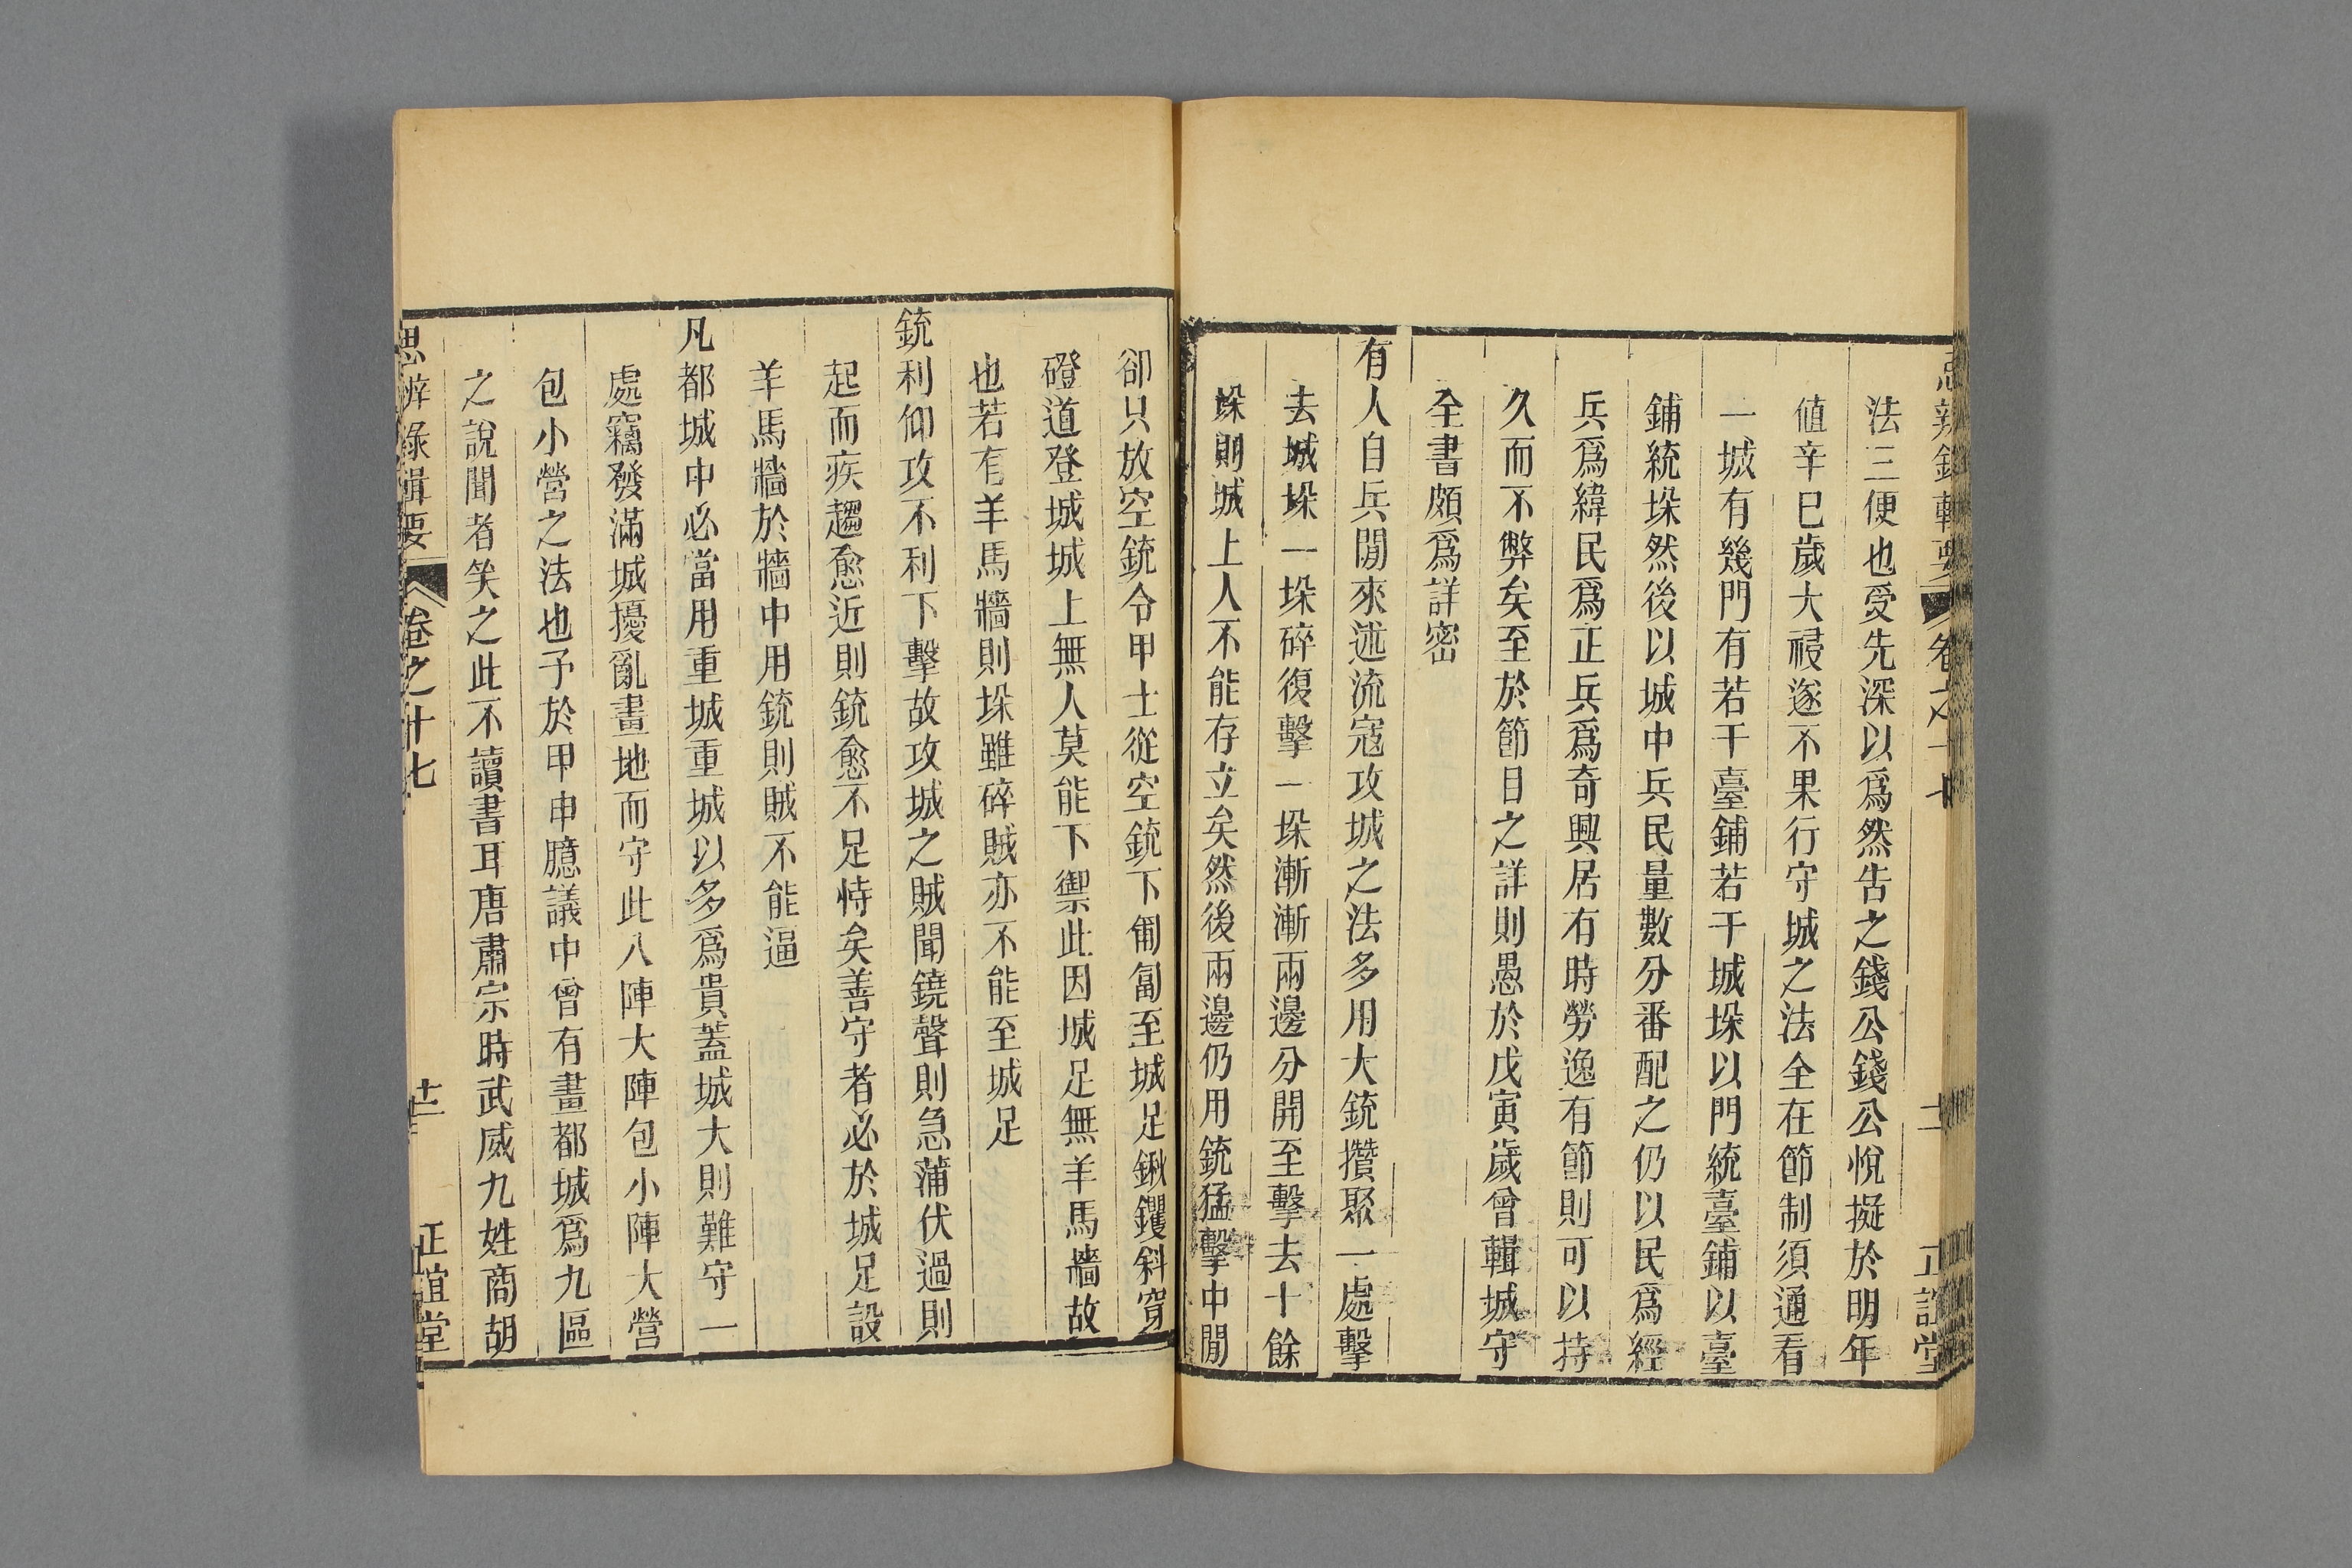 法三便也受先深以爲然告之錢公錢公悅擬於明年
値辛巳歲大祲遂不果行守城之法全在節制須通看
一城有幾門有若干臺鋪若干城垛以門統臺鋪以臺
鋪統垛然後以城中兵民量數分番配之仍以民爲經
兵爲緯民爲正兵爲奇興居有時勞逸有節則可以持
久而不弊矣至於節目之詳則愚於戊寅歲曾輯城守
全書頗爲詳密
有人自兵閒來述流寇攻城之法多用大銃攢聚一處擊
去城垛一垛碎復擊一垛漸漸兩邊分開至擊去十餘
垛則城上人不能存立矣然後兩邊仍用銃猛擊中閒
卻只放空銃令甲士從空銃下匍匐至城足鍬钁斜穿
磴道登城城上無人莫能下禦此因城足無羊馬牆故
也若有羊馬牆則垛雖碎賊亦不能至城足
銃利仰攻不利下擊故攻城之賊聞鐃聲則急蒲伏過則
起而疾趨愈近則銃愈不足恃矣善守者必於城足設
羊馬牆於牆中用銃則賊不能逼
凡都城中必當用重城重城以多爲貴蓋城大則難守一
處竊發滿城擾亂畫地而守此八陣大陣包小陣大營
包小營之法也予於甲申臆議中曾有畫都城爲九區
之說聞者笑之此不讀書耳唐肅宗時武威九姓商胡
思辨錄輯要 卷之十七 十二 正誼堂